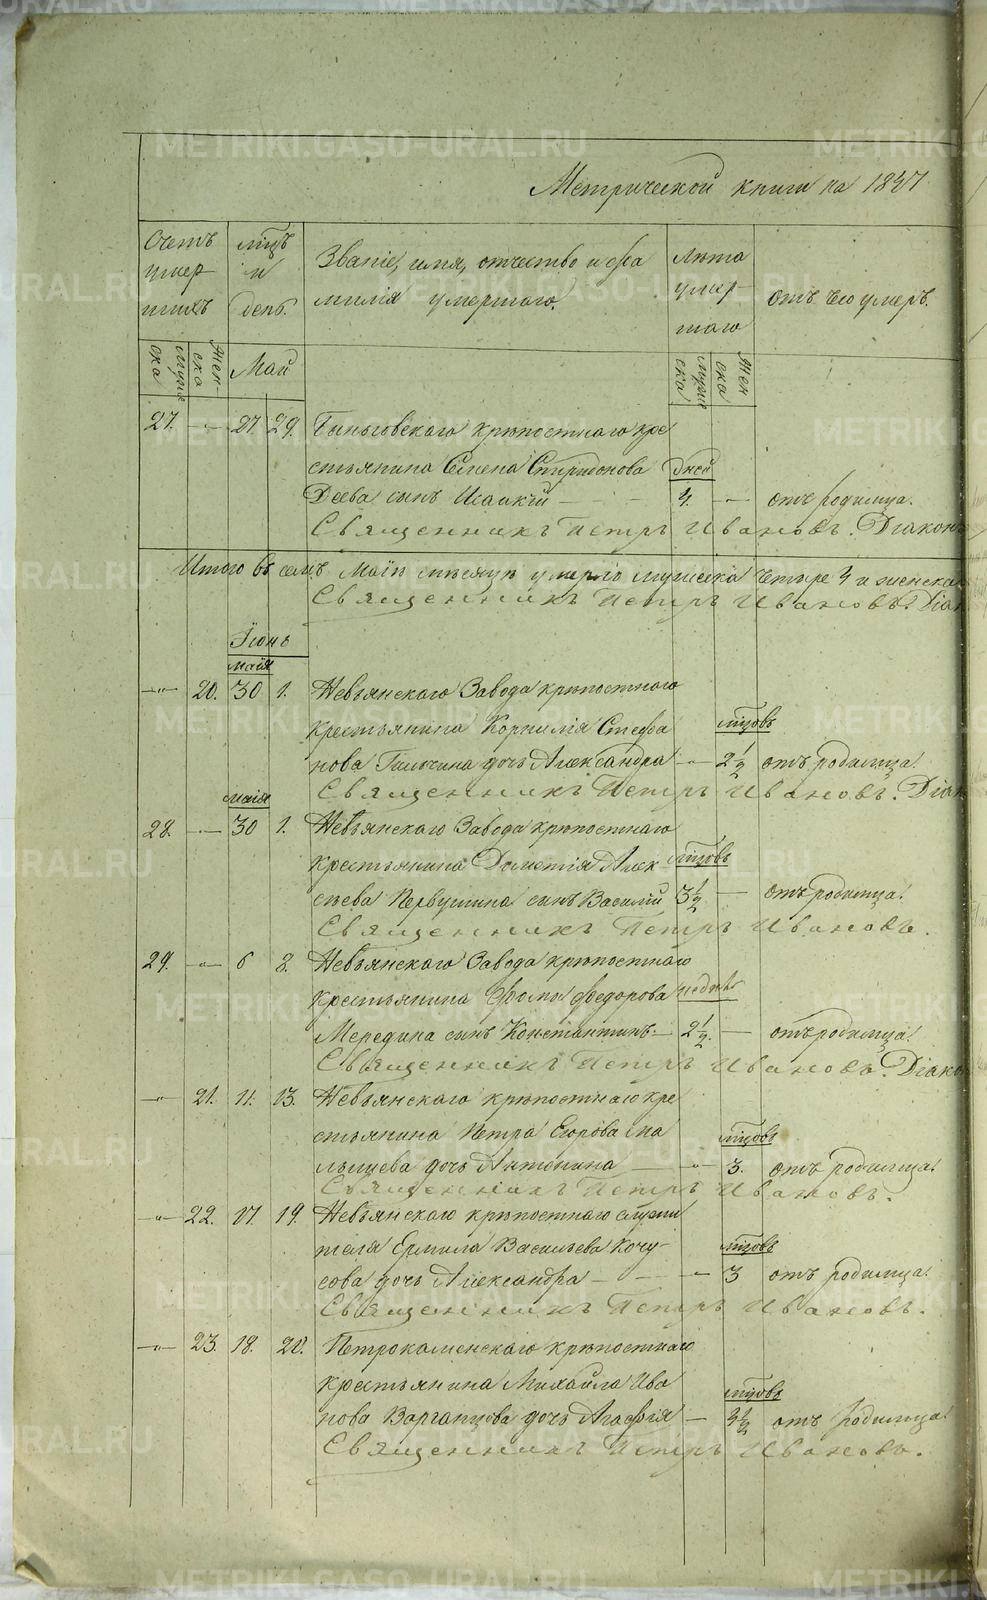 Метрической книги на 1847
Счетъ умер шихъ
мцъ и день.
Званіе, имя, отчество и фа
милія умершаго.
Лѣта умер- шаго
отъ чего умеръ.
мужеска
Женска
Май
мужеска
Женска
27. -„- 27. 29. Быньговскаго крѣпостнаго кре
стьянина Семена Спиридонова дней
Деева сынъ Исаакій 4. -„- отъ родимца.
Священникъ Петръ Ивановъ. Діаконъ
Итого въ семъ Маіѣ мѣсяцѣ умерло мужеска четыре 4 и женска
Священникъ Петръ Ивановъ. Діак
Іюнь
маія
-„- 20. 30 1. Невьянскаго Завода крѣпостнаго
крестьянина Корнилія Стефа мцовъ
нова дочь Александра -„- 2½ отъ родимца.
Священникъ Петръ Ивановъ. Діак
маія
28. -„- 30 1. Невьянскаго Завода крѣпостнаго
крестьянина Дометія Алек мцовъ
сѣева Первушина сынъ Василій 3½ — отъ родимца.
Священникъ Петръ Ивановъ.
29. -„- 6 8. Невьянскаго Завода крѣпостнаго
крестьянина Фомы Федорова недѣль
Мередина сынъ Константинъ. 2½. — отъ родимца.
Священникъ Петръ Ивановъ. Діако
-„- 21. 11. 13. Невьянскаго крѣпостнаго кре
стьянина Петра Егорова Ма мцовъ
лышева дочь Антонина -„- 3. отъ родимца.
Священникъ Петръ Ивановъ.
-„- 22. 17. 19. Невьянскаго крѣпостнаго служи
теля Ермила Васильева Кочу- мцовъ
сова дочь Александра -„- 3 отъ родимца.
Священникъ Петръ Ивановъ.
-„- 23. 18. 20. Петрокаменскаго крѣпостнаго
крестьянина Михайла Ива мцовъ
нова Варганцова дочь Агафія — 3½ отъ родимца.
Священникъ Петръ Ивановъ.
METRIKI.GASO-URAL.RU